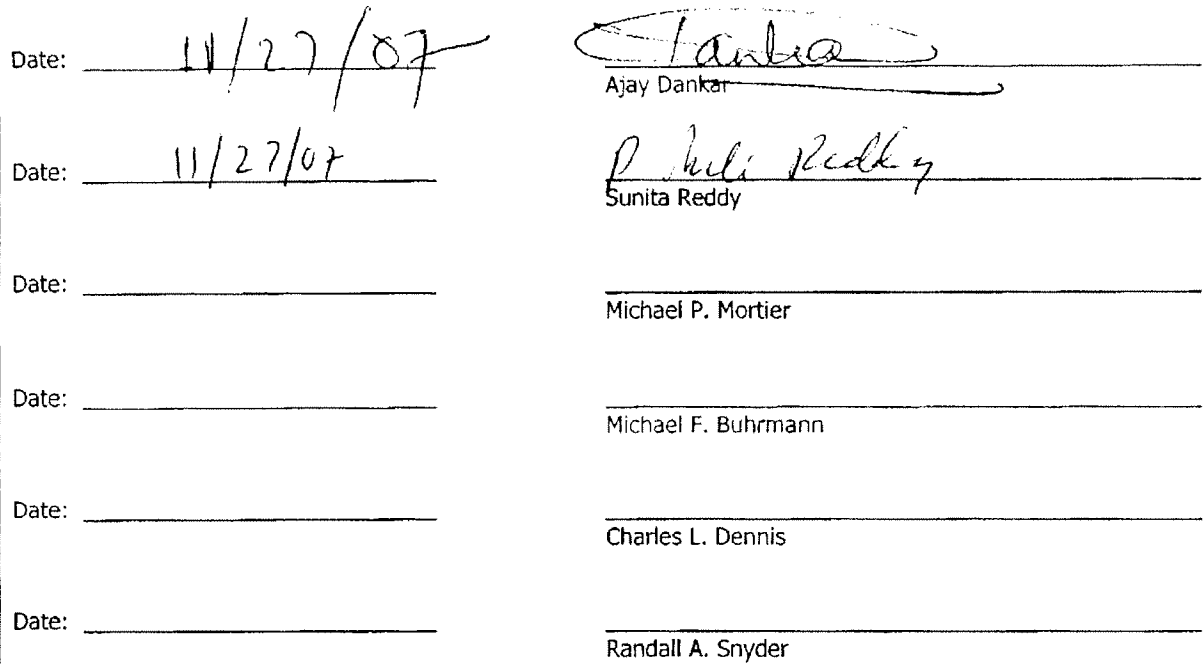 Date: 11/27/07 Dankar
Ajay Dankar
Date: 11/27/07 Reddy
Sunita Reddy
Date:
Michael P. Mortier
Date:
Michael F. Buhrmann
Date:
Charles L. Dennis
Date:
Randall A. Snyder